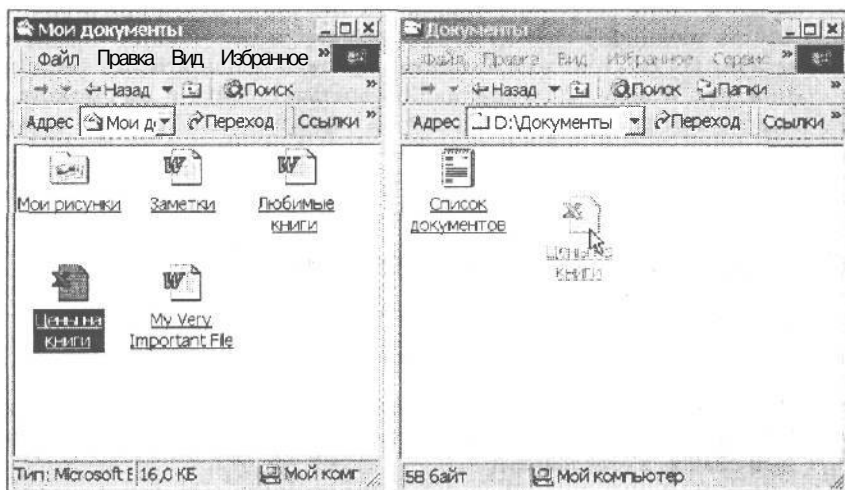 Мои документы
Файл Правка Вид Избранное »
Назад Поиск »
Адрес Мои д Переход Ссылки »
Мои рисунки Заметки Любимые книги
Цены на книги My Very Important File
Тип: Microsoft E 16,0 КБ Мой комг
Документы
Файл Правка Вид Избранное Сервис »
Назад Поиск Папки »
Адрес D:\Документы Переход Ссылки »
Список документов
Цены на книги
58 байт Мой компьютер